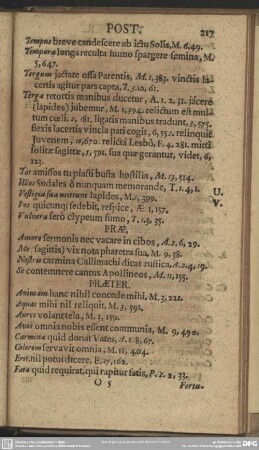 POST. 217
Tempus breve candescere ab ictu Solis, M. 6, 49.
Tempora longa reculta humo spargere semina, M.
5, 647.
Tergum jactate ossa Parentis, M. 1, 383. vinctis la-
certis agitur pars capta, T. 3. 10, 61.
Terga retortis manibus ducetur, A. 1. 2. 31. jacere
(lapides) jubemur, M. 1, 394. relictum est mul-
tum cœli, 2, 181. ligatis manibus tradunt, 3, 575.
flexis lacertis vincla pati cogit, 6, 55. relinquit
Juvenem, 10, 670. relicta Lesbô, F. 4. 281. mitti
solitæ sagittæ, 5, 591. sua quæ gerantur, videt, 6,
123.
Tot amissos tu plasti busta hostilia, M. 13, 514.
Ullos Sodales ô nunquam memorande, T. 1. 4, 1. U.
Vestigia sua mittunt lapides, M. 1, 399. V.
Vos quicunq; sedebit, respice, Æ. 1, 157.
Vulnera serò clypeum sumo, T. 1. 3, 35.
PRÆ,
Amore sermonis nec vacare in cibos, A. 2. 6, 29.
Me (sagittis) vix nota pharetra sua, M. 9, 38.
Nostris carmina Callimachi dicat rustica, A. 2. 4, 19.
Se contemnere cantus Apollineos, M. 11, 155.
PRÆTER.
Animam hanc nihil concede mihi, M, 3, 221.
Aquas mihi nil reliquit, M. 3, 591.
Aures volant tela, M. 3, 159.
Avos omnia nobis essent communia, M. 9, 490.
Carmina quid donat Vates, A. 1. 8, 67.
Colorem servavit omnia, M. 11, 404.
Erit, nil potui dicere, E. 17, 162.
Fata quid requirat, qui rapitur fatis, P. 2. 2, 33.
O 5 Fortu-